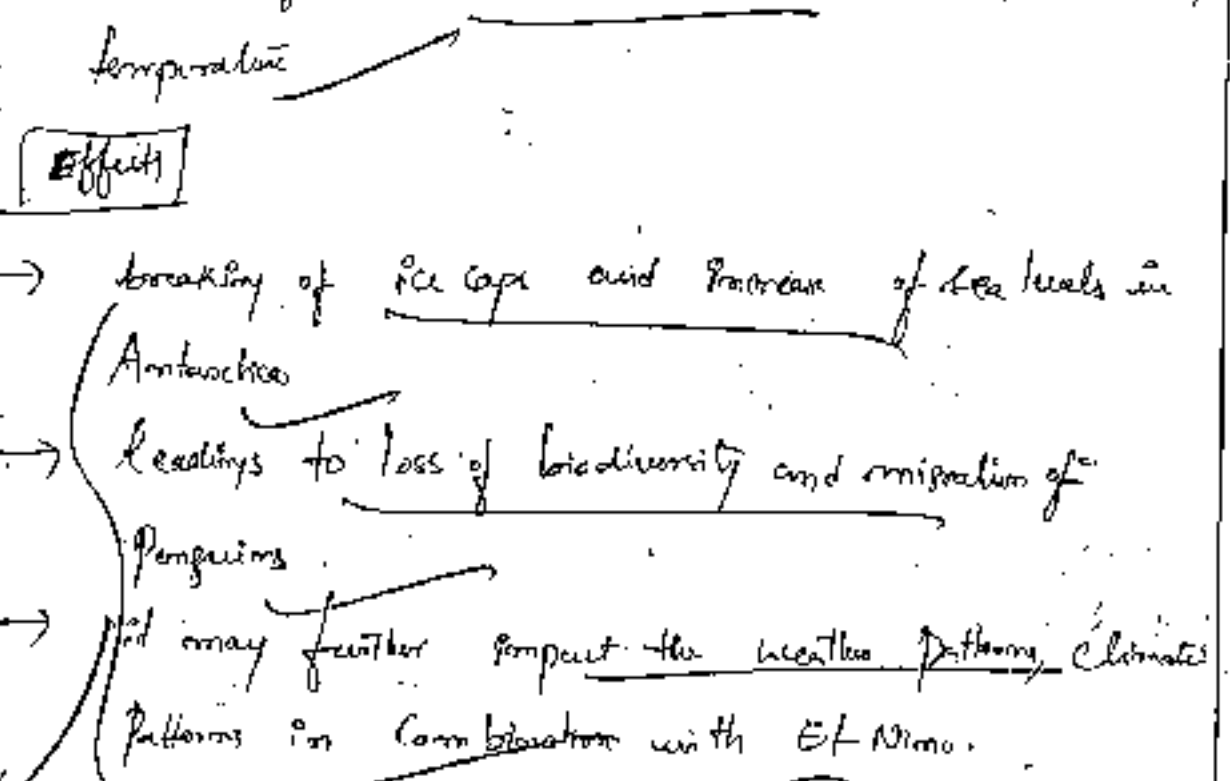 temperature
Effects
→ breaking of ice caps and increase of sea levels in
Antarctica
→ leadings to loss of biodiversity and migration of
Penguins
→ it may further impact the weather patterns, climatic
Patterns in Combination with El Nino.